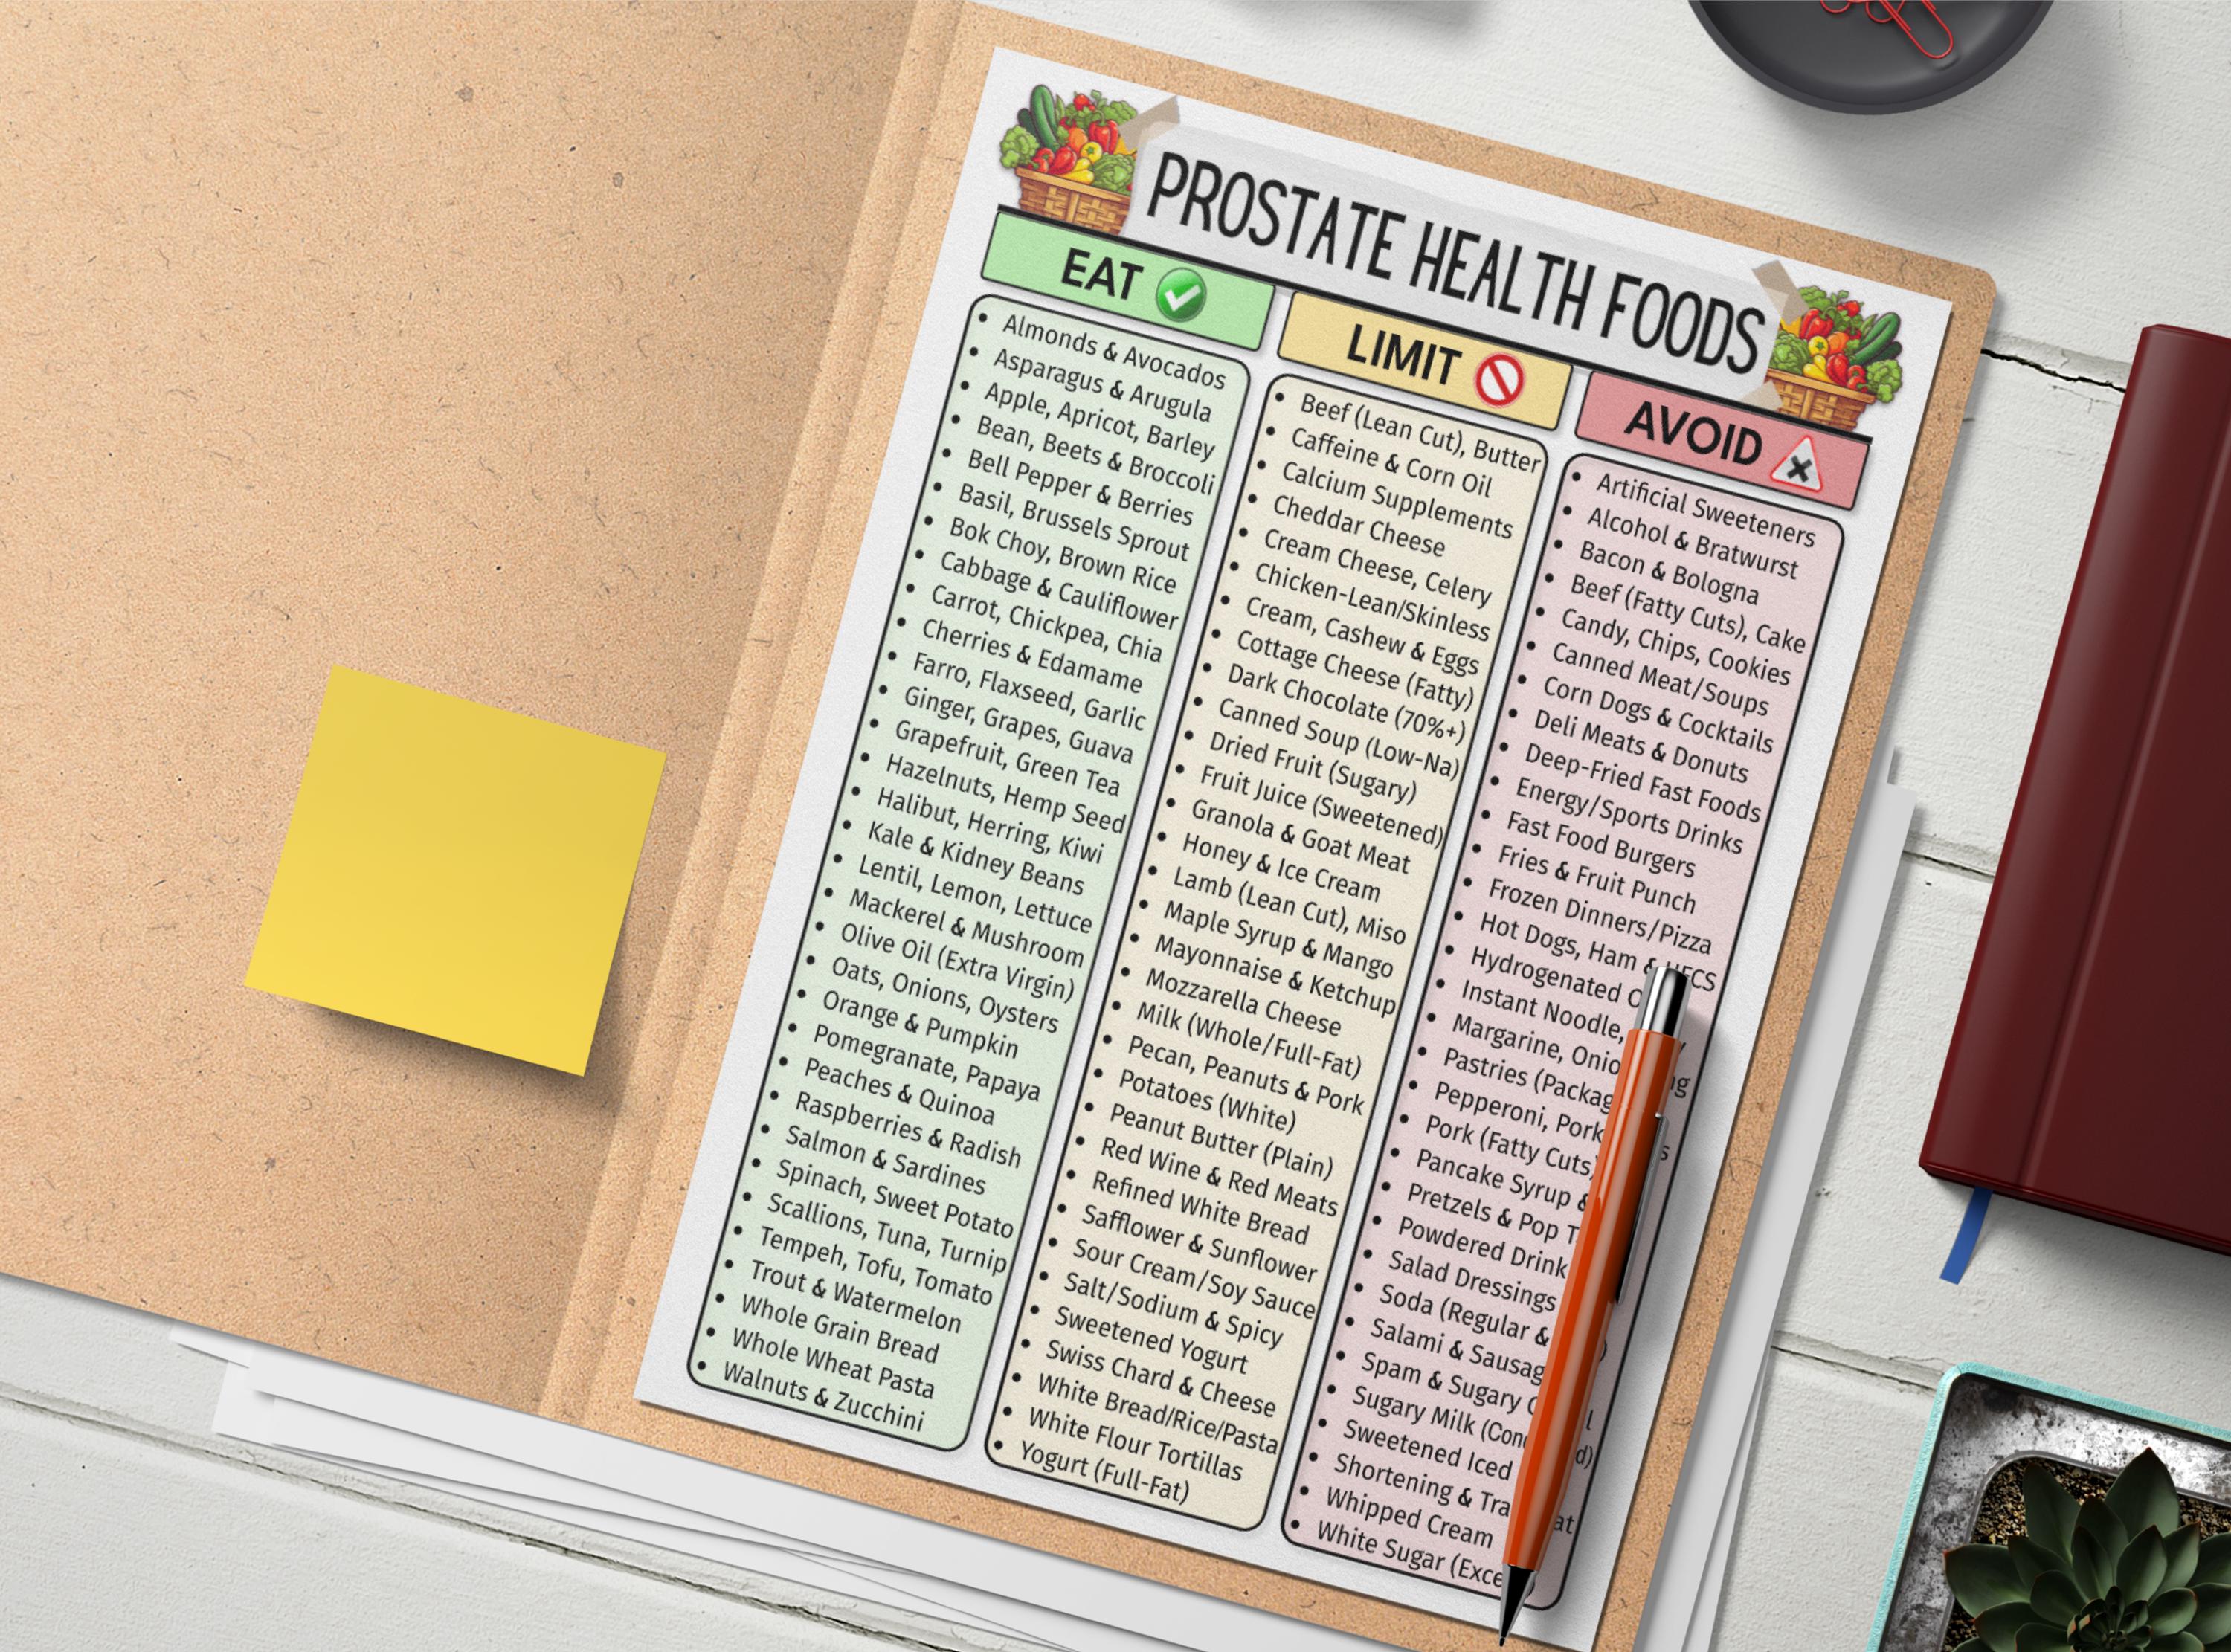 PROSTATE HEALTH FOODS
EAT
• Almonds & Avocados
• Asparagus & Arugula
• Apple, Apricot, Barley
• Bean, Beets & Broccoli
• Bell Pepper & Berries
• Basil, Brussels Sprout
• Bok Choy, Brown Rice
• Cabbage & Cauliflower
• Carrot, Chickpea, Chia
• Cherries & Edamame
• Farro, Flaxseed, Garlic
• Ginger, Grapes, Guava
• Grapefruit, Green Tea
• Hazelnuts, Hemp Seed
• Halibut, Herring, Kiwi
• Kale & Kidney Beans
• Lentil, Lemon, Lettuce
• Mackerel & Mushroom
• Olive Oil (Extra Virgin)
• Oats, Onions, Oysters
• Orange & Pumpkin
• Pomegranate, Papaya
• Peaches & Quinoa
• Raspberries & Radish
• Salmon & Sardines
• Spinach, Sweet Potato
• Scallions, Tuna, Turnip
• Tempeh, Tofu, Tomato
• Trout & Watermelon
• Whole Grain Bread
• Whole Wheat Pasta
• Walnuts & Zucchini
LIMIT
• Beef (Lean Cut), Butter
• Caffeine & Corn Oil
• Calcium Supplements
• Cheddar Cheese
• Cream Cheese, Celery
• Chicken-Lean/Skinless
• Cream, Cashew & Eggs
• Cottage Cheese (Fatty)
• Dark Chocolate (70%+)
• Canned Soup (Low-Na)
• Dried Fruit (Sugary)
• Fruit Juice (Sweetened)
• Granola & Goat Meat
• Honey & Ice Cream
• Lamb (Lean Cut), Miso
• Maple Syrup & Mango
• Mayonnaise & Ketchup
• Mozzarella Cheese
• Milk (Whole/Full-Fat)
• Pecan, Peanuts & Pork
• Potatoes (White)
• Peanut Butter (Plain)
• Red Wine & Red Meats
• Refined White Bread
• Safflower & Sunflower
• Sour Cream/Soy Sauce
• Salt/Sodium & Spicy
• Sweetened Yogurt
• Swiss Chard & Cheese
• White Bread/Rice/Pasta
• White Flour Tortillas
• Yogurt (Full-Fat)
AVOID
• Artificial Sweeteners
• Alcohol & Bratwurst
• Bacon & Bologna
• Beef (Fatty Cuts), Cake
• Candy, Chips, Cookies
• Canned Meat/Soups
• Corn Dogs & Cocktails
• Deli Meats & Donuts
• Deep-Fried Fast Foods
• Energy/Sports Drinks
• Fast Food Burgers
• Fries & Fruit Punch
• Frozen Dinners/Pizza
• Hot Dogs, Ham & HFCS
• Hydrogenated
• Instant Noodle,
• Margarine,
• Pastries
• Pepperoni, Pork
• Pork (Fatty Cuts)
• Pancake Syrup &
• Pretzels & Pop
• Powdered Drink
• Salad Dressings
• Soda (Regular &
• Salami &
• Spam & Sugary
• Sugary Milk
• Sweetened Iced
• Shortening &
• Whipped Cream
• White Sugar